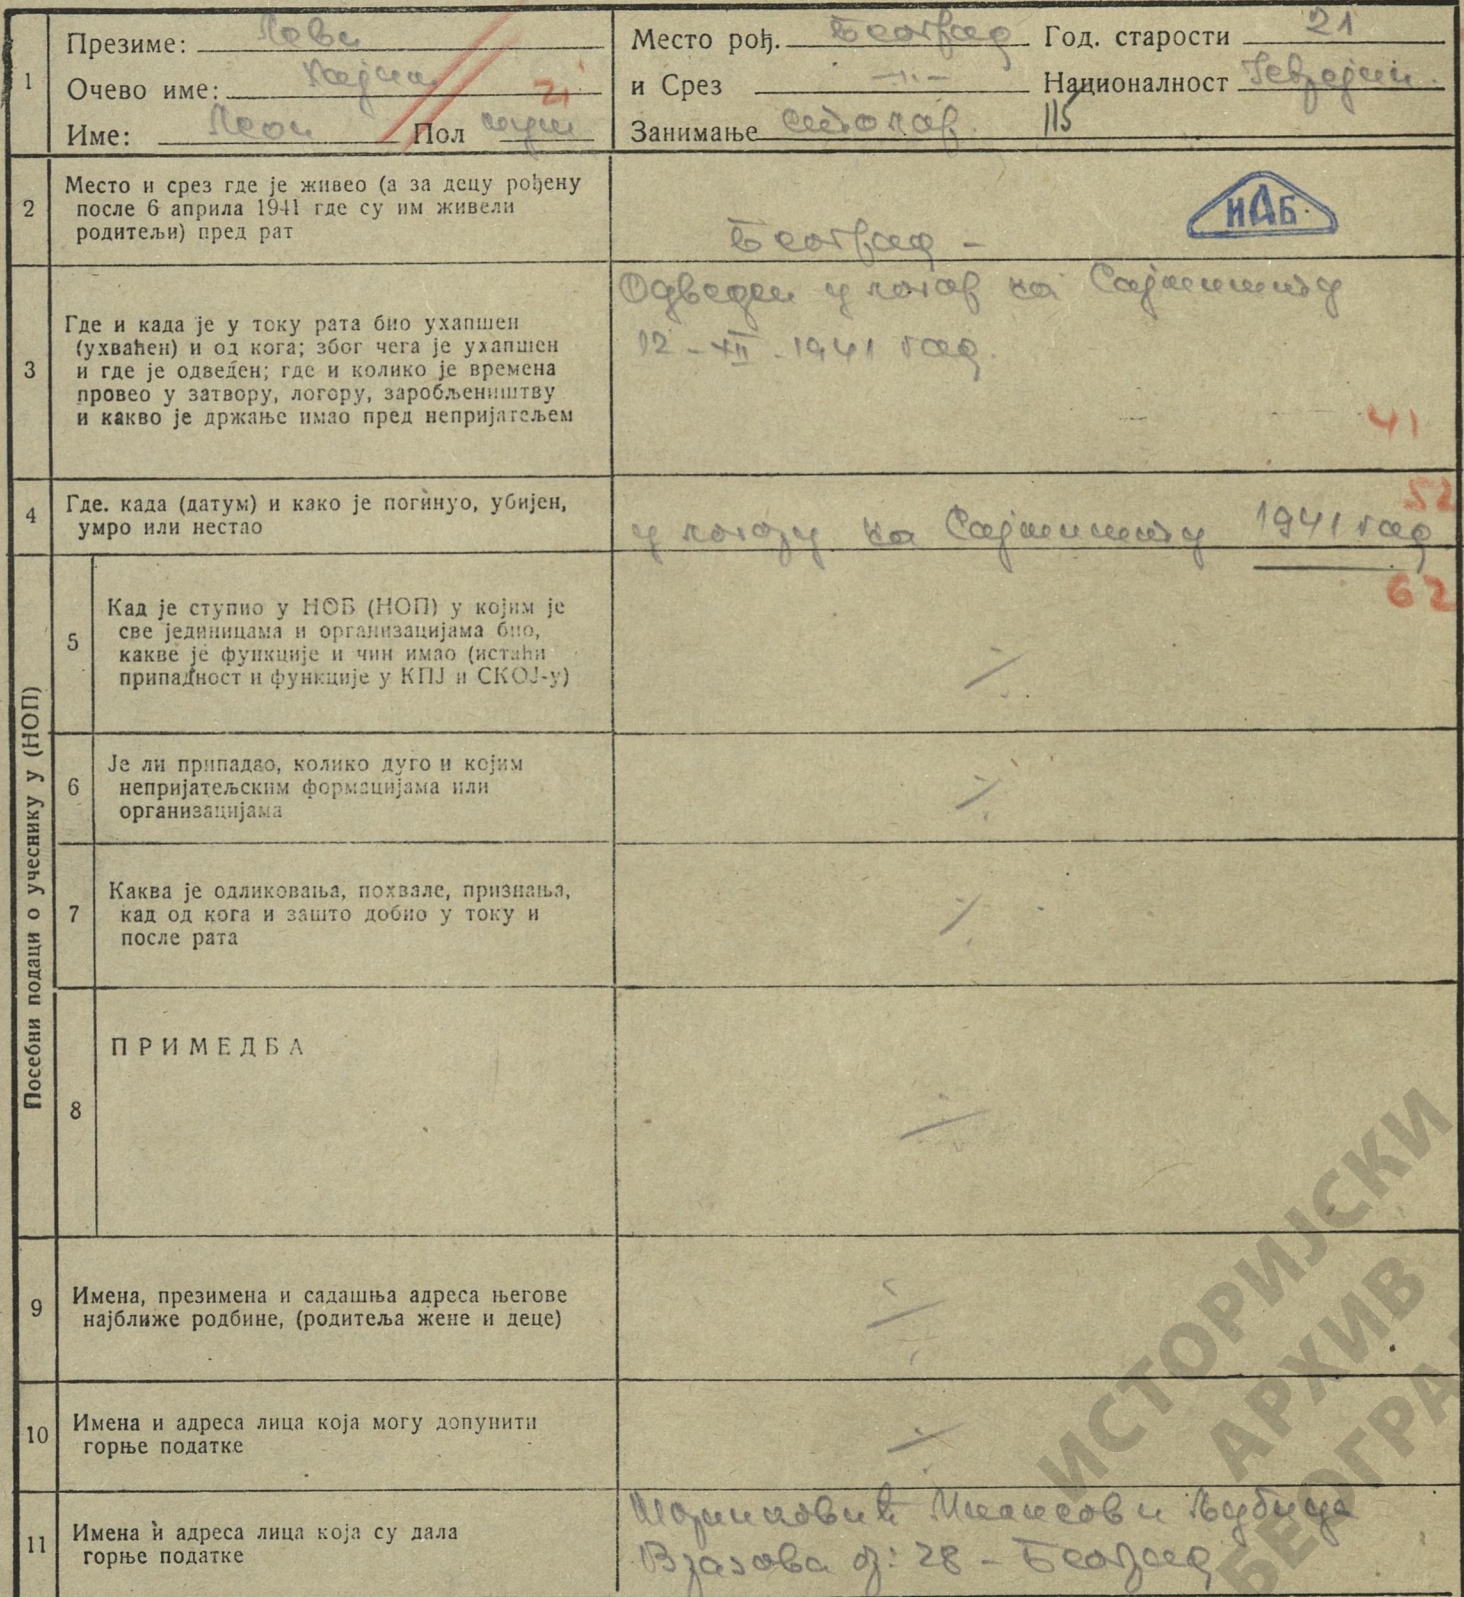 1
Презиме: Леви
Очево име: Хајим 21
Име: Леон Пол мушки
Место рођ. Београд Год. старости 21
и Срез -"- Националност Јеврејин.
Занимање столар. 115
2
Место и срез где је живео (а за децу рођену
после 6 априла 1941 где су им живели
родитељи) пред рат
ИАБ.
Београд -
3
Где и када је у току рата био ухапшен
(ухваћен) и од кога; због чега је ухапшен
и где је одведен; где и колико је времена
провео у затвору, логору, заробљеништву
и какво је држање имао пред непријатељем
Одведен у логор на Сајмишту
12-XII-1941 год.
41
4
Где. када (датум) и како је погинуо, убијен,
умро или нестао
52
у логору на Сајмишту 1941 год
62
Посебни подаци о учеснику у (НОП)
5
Кад је ступио у НОБ (НОП) у којим је
све јединицама и организацијама био,
какве је функције и чин имао (истаћи
припадност и функције у КПЈ и СКОЈ-у)
6
Је ли припадао, колико дуго и којим
непријатељским формацијама или
организацијама
7
Каква је одликовања, похвале, признања,
кад од кога и зашто добио у току и
после рата
8
ПРИМЕДБА
9
Имена, презимена и садашња адреса његове
најближе родбине, (родитеља жене и деце)
10
Имена и адреса лица која могу допунити
горње податке
11
Имена и адреса лица која су дала
горње податке
и Љубица
28 - Београд
ИСТОРИЈСКИ
АРХИВ
БЕОГРА